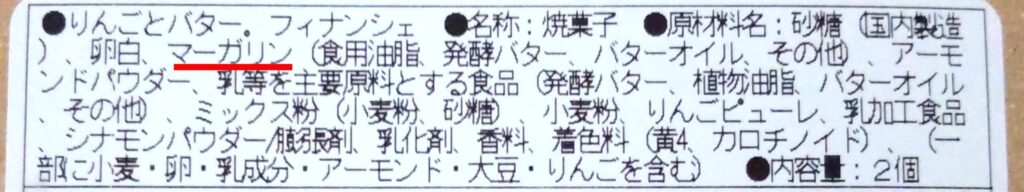 ●りんごとバター。フィナンシェ　●名称：焼菓子　●原材料名：砂糖（国内製造
）、卵白、マーガリン（食用油脂、発酵バター、バターオイル、その他）、アーモ
ンドパウダー、乳等を主要原料とする食品（発酵バター、植物油脂、バターオイル
、その他）、ミックス粉（小麦粉、砂糖）、小麦粉、りんごピューレ、乳加工食品
、シナモンパウダー/膨張剤、乳化剤、香料、着色料（黄4、カロチノイド）、（一
部に小麦・卵・乳成分・アーモンド・大豆・りんごを含む）　●内容量：２個